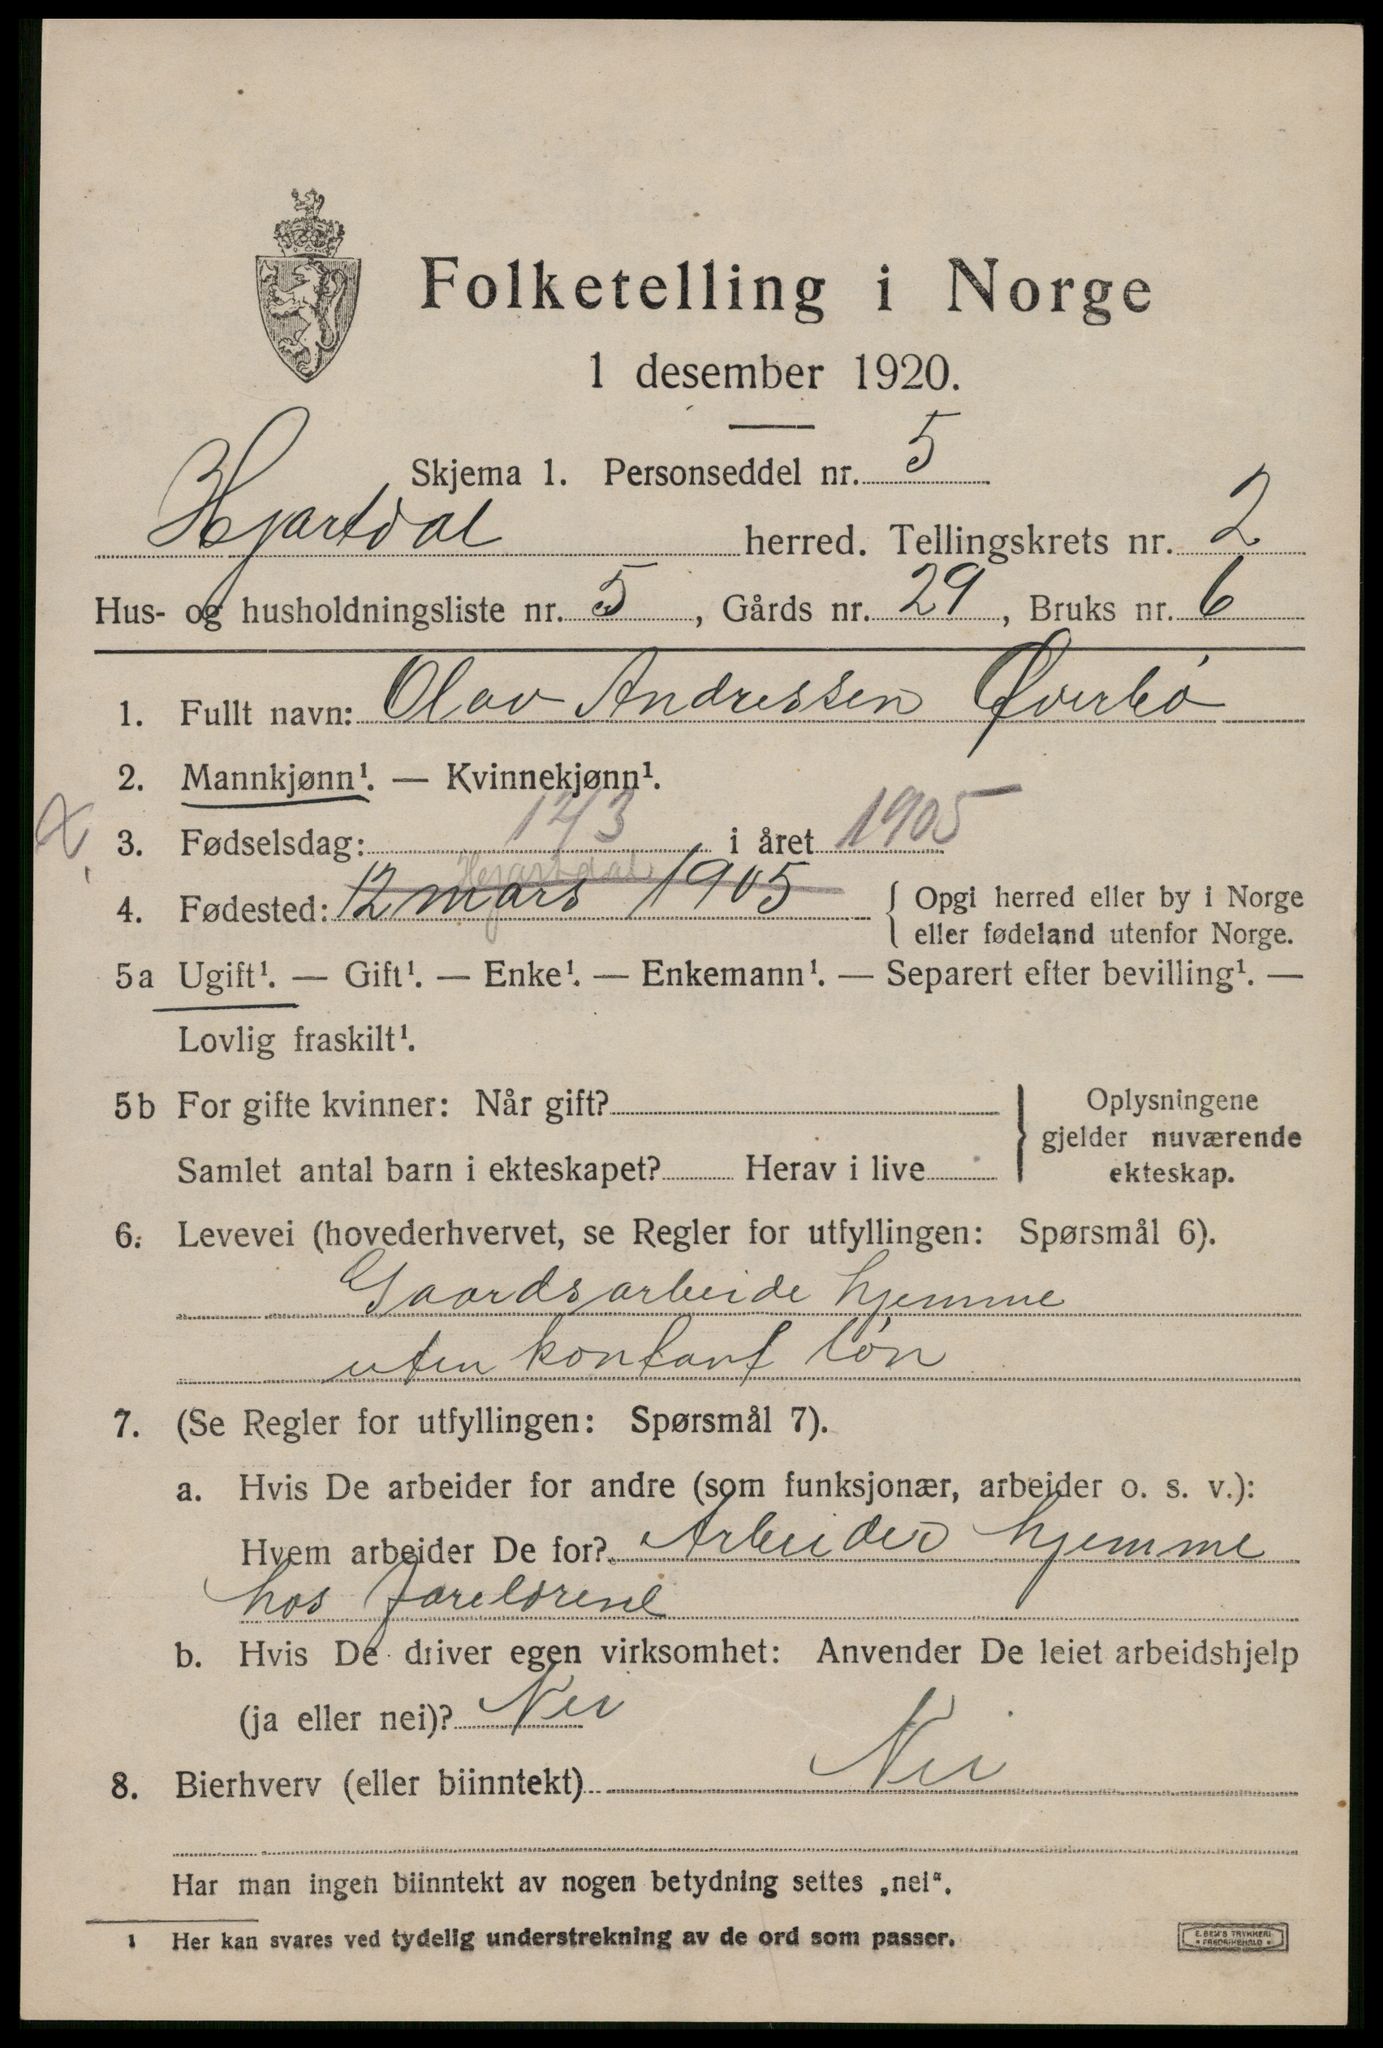 Folketelling i Norge
1 desember 1920.
Skjema 1. Personseddel nr. 5
Hjartdal herred. Tellingskrets nr. 2
Hus- og husholdningsliste nr. 5, Gårds nr. 29, Bruks nr. 6
1. Fullt navn: Olav Andressen Øverbö
2. Mannkjønn¹. — Kvinnekjønn¹.
3. Fødselsdag: 12/3 i året 1905
Hjartdal
4. Fødested: 12 mars 1905 { Opgi herred eller by i Norge
eller fødeland utenfor Norge.
5a Ugift¹. — Gift¹. — Enke¹. — Enkemann¹. — Separert efter bevilling¹. —
Lovlig fraskilt¹.
5b For gifte kvinner: Når gift?
Samlet antal barn i ekteskapet? Herav i live
} Oplysningene
gjelder nuværende
ekteskap.
6. Levevei (hovederhvervet, se Regler for utfyllingen: Spørsmål 6).
Gaardsarbeide hjemme
uten kontant lön
7. (Se Regler for utfyllingen: Spørsmål 7).
a. Hvis De arbeider for andre (som funksjonær, arbeider o. s. v.):
Hvem arbeider De for? Arbeider hjemme
hos foreldrene
b. Hvis De driver egen virksomhet: Anvender De leiet arbeidshjelp
(ja eller nei)? Nei
8. Bierhverv (eller biinntekt) Nei
Har man ingen biinntekt av nogen betydning settes „nei“.
1 Her kan svares ved tydelig understrekning av de ord som passer.
E. SEM'S TRYKKERI
* FREDRIKSHALD *